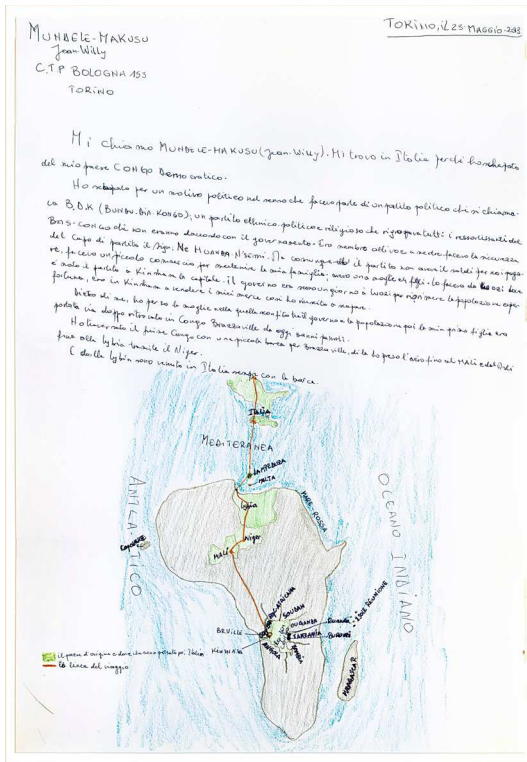 MUNDELE-MAKUSU
Jean-Willy
C.T.P BOLOGNA 153
TORINO
TORINO, il 23 MAGGIO
Mi chiamo MUNDELE-MAKUSU (Jean-Willy). Mi trovo in Italia perché ho scappato
del mio paese CONGO Democratico.
Ho scappato per un motivo politico nel senso che facevo parte di un partito politico chi si chiama
B.D.K (BUNDU-DIA-KONGO); un partito ethnico, politico e religioso che tutti i ressortissanti del
BAS-CONGO eravamo daccordo con il governamento. Ero membro attivo e facevo la sicurezza
del Capo di partito il sign. Ne MUANDA NSEMI. Ma il partito non aveva il soldi per noi
facevo un piccolo comercio per la mia famiglia, avevo una moglie e figli. lo facevo da
è nato il partito a Kinshasa la capitale. il governo un giorno a per la popolazione
fortuna, ero in Kinshasa a vendere i miei merce così ho riuscito a scapare.
Dietro di me, ho perso la moglie nella quella il governo e la popolazione poi la mia prima figlia era
portata via dopo in Congo Brazzaville da oggi anni passati.
Ho il fiume Congo con una piccola barca per Brazzaville, di la ho preso l'aereo fino al MALI e dal Mali
fino alla lybia tramite il Niger.
E dalla lybia sono venuto in Italia sempre con la barca.
ITALIA
MEDITERANEA
LAMPEDUSA
MALTA
lybia
MARE ROSSO
ATLANTICO
OCEANO INDIANO
MALI
Niger
SOUDAN
OUGANDA
Rwanda
ISOLE REUNIONE
BR.VILLE
TANZANIA
BURUNDI
KINSHASA
ANGOLA
ZAMBIA
MADAGASCAR
il paese d'origine e dove che sono passato per Italia
la linea del viaggio